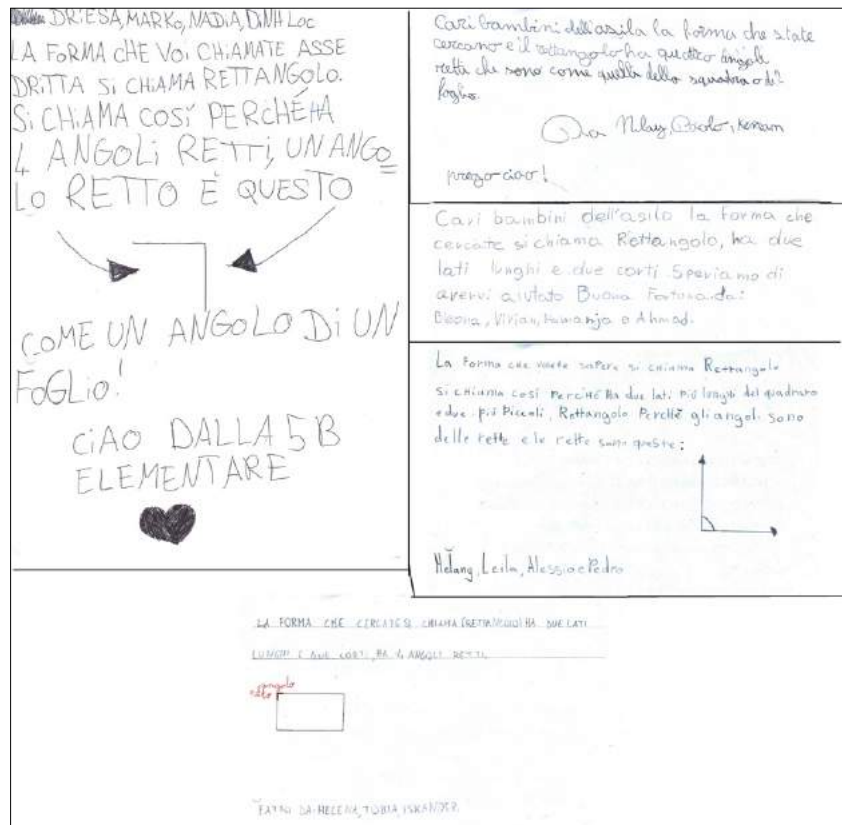 DRiESA, MARKO, NADiA, DiNH LOC
LA FORMA CHE VOi CHiAMATE ASSE
DRiTTA Si CHiAMA RETTANGOLO.
Si CHiAMA COSí PERCHÉ HA
4 ANGOLi RETTi, UN ANGO
LO RETTO É QUESTO
COME UN ANGOLO Di UN
FOGLiO!
CiAO DALLA 5 B
ELEMENTARE
Cari bambini dell'asila la forma che state
cercano e il rettangolo ha quattro angoli
retti che sono come quella della squadra o di
foglio.
Da Nilay, Paolo, Kenan
prego ciao!
Cari bambini dell'asilo la forma che
cercate si chiama Rettangolo, ha due
lati lunghi e due corti. Speriamo di
avervi aiutato Buona Fortuna da:
Vivian, e Ahmad.
La forma che volete sapere si chiama Rettangolo
si chiama così Perché Ha due lati più lunghi del quadrato
e due più Piccoli, Rettangolo Perchè gli angoli sono
delle rette e le rette sono queste:
Metang, Leila, Alessio e Pedro
LA FORMA CHE CERCATE SI CHIAMA (RETTANGOLO) HA DUE LATI
LUNGHI E DUE CORTI, HA 4 ANGOLI RETTI.
angolo
retto
FATTO DA HELENA, TOBIA, ISKANDER.